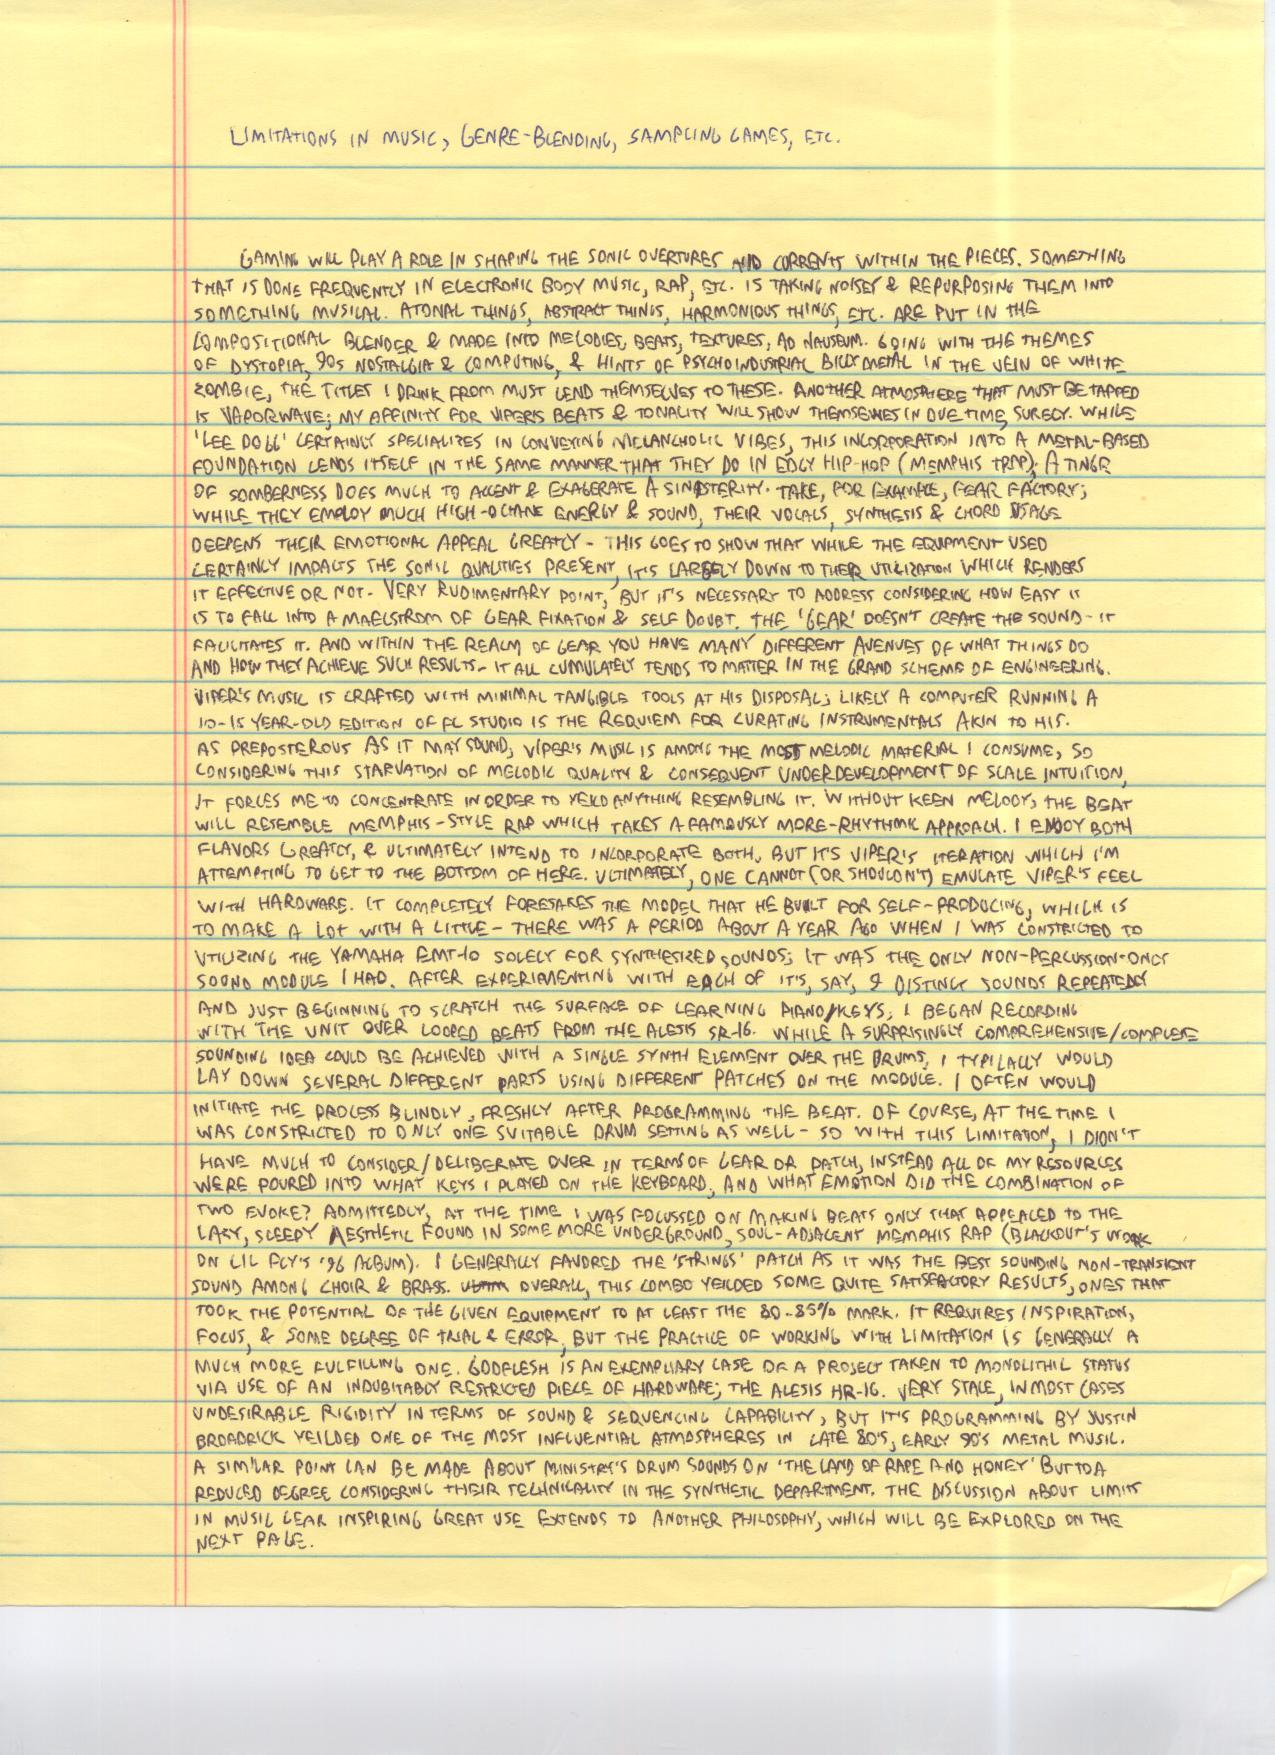 LIMITATIONS IN MUSIC, GENRE-BLENDING, SAMPLING GAMES, ETC.
GAMING WILL PLAY A ROLE IN SHAPING THE SONIC OVERTURES AND CURRENTS WITHIN THE PIECES. SOMETHING
THAT IS DONE FREQUENTLY IN ELECTRONIC BODY MUSIC, RAP, ETC. IS TAKING NOISEY & REPURPOSING THEM INTO
SOMETHING MUSICAL. ATONAL THINGS, ABSTRACT THINGS, HARMONIOUS THINGS, ETC. ARE PUT IN THE
COMPOSITIONAL BLENDER & MADE INTO MELODIES, BEATS, TEXTURES, AD NAUSEUM. GOING WITH THE THEMES
OF DYSTOPIA, 90s NOSTALGIA & COMPUTING, & HINTS OF PSYCHOINDUSTRIAL BILLY METAL IN THE VEIN OF WHITE
ZOMBIE, THE TITLES I DRINK FROM MUST LEND THEMSELVES TO THESE. ANOTHER ATMOSPHERE THAT MUST BE TAPPED
IS VAPORWAVE; MY AFFINITY FOR VIPER'S BEATS & TONALITY WILL SHOW THEMSELVES IN DUE TIME, SURELY. WHILE
'LEE DOLL' CERTAINLY SPECIALIZES IN CONVEYING MELANCHOLIC VIBES, THIS INCORPORATION INTO A METAL-BASED
FOUNDATION LENDS ITSELF IN THE SAME MANNER THAT THEY DO IN EDGY HIP-HOP (MEMPHIS TRAP); A TINGE
OF SOMBERNESS DOES MUCH TO ACCENT & EXAGERATE A SINISTERITY. TAKE, FOR EXAMPLE, FEAR FACTORY;
WHILE THEY EMPLOY MUCH HIGH-OCTANE ENERGY & SOUND, THEIR VOCALS, SYNTHESIS & CHORD USAGE
DEEPENS THEIR EMOTIONAL APPEAL GREATLY - THIS GOES TO SHOW THAT WHILE THE EQUIPMENT USED
CERTAINLY IMPACTS THE SONIC QUALITIES PRESENT, IT'S LARGELY DOWN TO THEIR UTILIZATION WHICH RENDERS
IT EFFECTIVE OR NOT. VERY RUDIMENTARY POINT, BUT IT'S NECESSARY TO ADDRESS CONSIDERING HOW EASY IT
IS TO FALL INTO A MAELSTROM OF GEAR FIXATION & SELF DOUBT. THE 'GEAR' DOESN'T CREATE THE SOUND - IT
FACILITATES IT. AND WITHIN THE REALM OF GEAR YOU HAVE MANY DIFFERENT AVENUES OF WHAT THINGS DO
AND HOW THEY ACHIEVE SUCH RESULTS - IT ALL CUMULATELY TENDS TO MATTER IN THE GRAND SCHEME OF ENGINEERING.
VIPER'S MUSIC IS CRAFTED WITH MINIMAL TANGIBLE TOOLS AT HIS DISPOSAL; LIKELY A COMPUTER RUNNING A
10-15 YEAR-OLD EDITION OF FL STUDIO IS THE REQUIEM FOR CURATING INSTRUMENTALS AKIN TO HIS.
AS PREPOSTEROUS AS IT MAY SOUND, VIPER'S MUSIC IS AMONG THE MOST MELODIC MATERIAL I CONSUME, SO
CONSIDERING THIS STARVATION OF MELODIC QUALITY & CONSEQUENT UNDERDEVELOPMENT OF SCALE INTUITION,
IT FORCES ME TO CONCENTRATE IN ORDER TO YEILD ANYTHING RESEMBLING IT. WITHOUT KEEN MELODY, THE BEAT
WILL RESEMBLE MEMPHIS-STYLE RAP WHICH TAKES A FAMOUSLY MORE-RHYTHMIC APPROACH. I ENJOY BOTH
FLAVORS GREATLY, & ULTIMATELY INTEND TO INCORPORATE BOTH, BUT IT'S VIPER'S ITERATION WHICH I'M
ATTEMPTING TO GET TO THE BOTTOM OF HERE. ULTIMATELY, ONE CANNOT (OR SHOULDN'T) EMULATE VIPER'S FEEL
WITH HARDWARE. IT COMPLETELY FORESAKES THE MODEL THAT HE BUILT FOR SELF-PRODUCING, WHICH IS
TO MAKE A LOT WITH A LITTLE - THERE WAS A PERIOD ABOUT A YEAR AGO WHEN I WAS CONSTRICTED TO
UTILIZING THE YAMAHA EMT-10 SOLELY FOR SYNTHESIZED SOUNDS; IT WAS THE ONLY NON-PERCUSSION-ONLY
SOUND MODULE I HAD. AFTER EXPERIMENTING WITH EACH OF IT'S, SAY, 9 DISTINCT SOUNDS REPEATEDLY
AND JUST BEGINNING TO SCRATCH THE SURFACE OF LEARNING PIANO/KEYS, I BEGAN RECORDING
WITH THE UNIT OVER LOOPED BEATS FROM THE ALESIS SR-16. WHILE A SURPRISINGLY COMPREHENSIVE/COMPLETE
SOUNDING IDEA COULD BE ACHIEVED WITH A SINGLE SYNTH ELEMENT OVER THE DRUMS, I TYPICALLY WOULD
LAY DOWN SEVERAL DIFFERENT PARTS USING DIFFERENT PATCHES ON THE MODULE. I OFTEN WOULD
INITIATE THE PROCESS BLINDLY, FRESHLY AFTER PROGRAMMING THE BEAT. OF COURSE, AT THE TIME I
WAS CONSTRICTED TO ONLY ONE SUITABLE DRUM SETTING AS WELL - SO WITH THIS LIMITATION, I DIDN'T
HAVE MUCH TO CONSIDER/DELIBERATE OVER IN TERMS OF GEAR OR PATCH, INSTEAD ALL OF MY RESOURCES
WERE POURED INTO WHAT KEYS I PLAYED ON THE KEYBOARD, AND WHAT EMOTION DID THE COMBINATION OF
TWO EVOKE? ADMITTEDLY, AT THE TIME I WAS FOCUSSED ON MAKING BEATS ONLY THAT APPEALED TO THE
LAZY, SLEEPY AESTHETIC FOUND IN SOME MORE UNDERGROUND, SOUL-ADJACENT MEMPHIS RAP (BLACKOUT'S WORK
ON LIL FLY'S '96 ALBUM). I GENERALLY FAVORED THE 'STRINGS' PATCH AS IT WAS THE BEST SOUNDING NON-TRANSIENT
SOUND AMONG CHOIR & BRASS. OVERALL, THIS COMBO YEILDED SOME QUITE SATISFACTORY RESULTS, ONES THAT
TOOK THE POTENTIAL OF THE GIVEN EQUIPMENT TO AT LEAST THE 80-85% MARK. IT REQUIRES INSPIRATION,
FOCUS, & SOME DEGREE OF TRIAL & ERROR, BUT THE PRACTICE OF WORKING WITH LIMITATION IS GENERALLY A
MUCH MORE FULFILLING ONE. GODFLESH IS AN EXEMPLIARY CASE OF A PROJECT TAKEN TO MONOLITHIC STATUS
VIA USE OF AN INDUBITABLY RESTRICTED PIECE OF HARDWARE; THE ALESIS HR-16. VERY STALE, IN MOST CASES
UNDESIRABLE RIGIDITY IN TERMS OF SOUND & SEQUENCING CAPABILITY, BUT IT'S PROGRAMMING BY JUSTIN
BROADRICK YEILDED ONE OF THE MOST INFLUENTIAL ATMOSPHERES IN LATE 80'S, EARLY 90'S METAL MUSIC.
A SIMILAR POINT CAN BE MADE ABOUT MINISTRY'S DRUM SOUNDS ON 'THE LAND OF RAPE AND HONEY' BUT TO A
REDUCED DEGREE CONSIDERING THEIR TECHNICALITY IN THE SYNTHETIC DEPARTMENT. THE DISCUSSION ABOUT LIMITS
IN MUSIC GEAR INSPIRING GREAT USE EXTENDS TO ANOTHER PHILOSOPHY, WHICH WILL BE EXPLORED ON THE
NEXT PAGE.